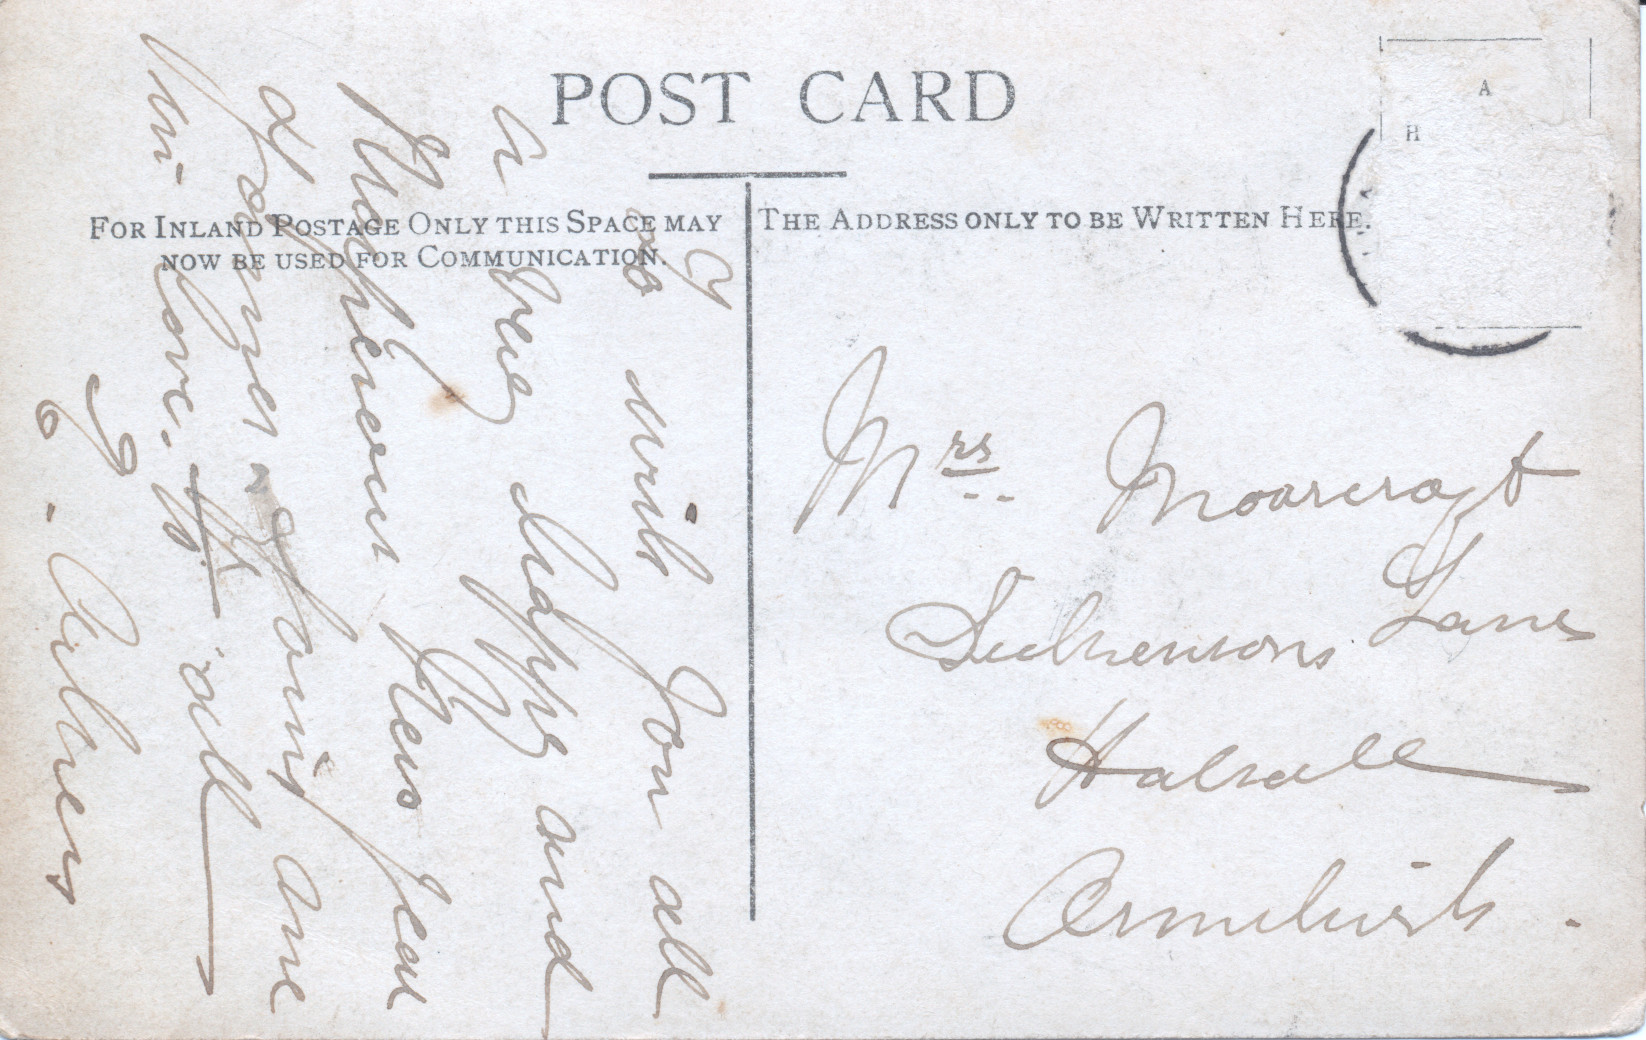 POST CARD
FOR INLAND POSTAGE ONLY THIS SPACE MAY
NOW BE USED FOR COMMUNICATION.
THE ADDRESS ONLY TO BE WRITTEN HERE.
A
H
I do wish you all
a very happy and
prosperous New year
in love to all
Mrs Moorcroft
Dickensons Lane
Halsall
Ormskirk.